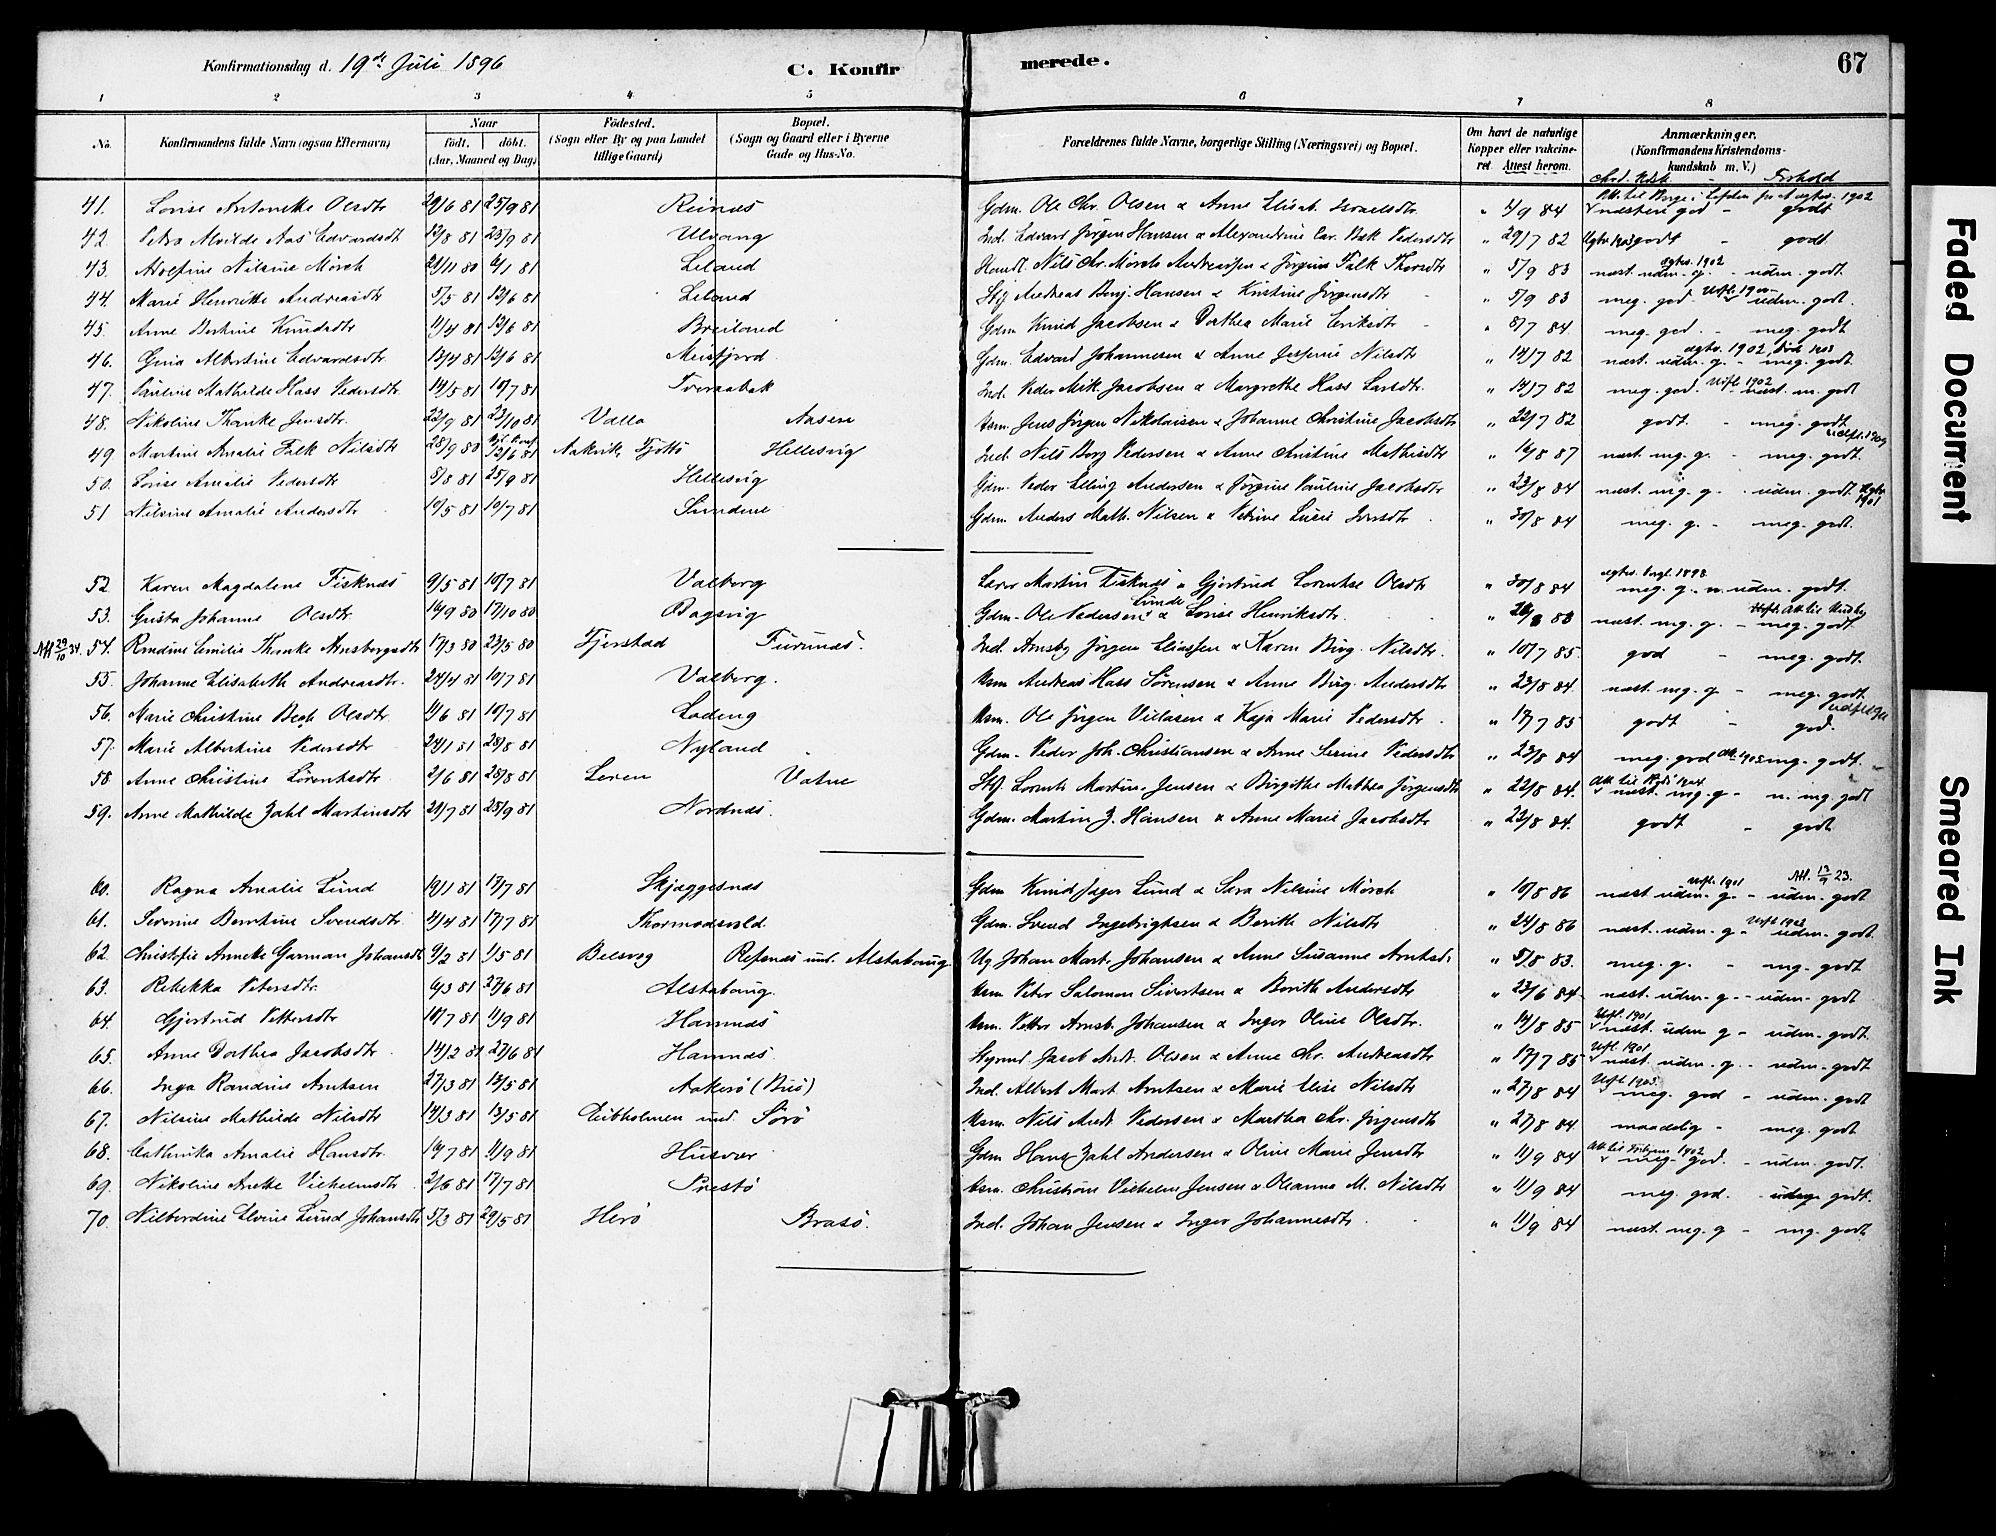 Konfirmationsdag d. 19de Juli 1896 C. Konfirmerede. 67
1 2 3 4 5 6 7 8
No. Konfirmandens fulde Navn (ogsaa Efternavn) Naar födt. döbt. (Aar, Maaned og Dag) Födested. (Sogn eller By og paa Landet tillige Gaard) Bopæl. (Sogn og Gaard eller i Byerne Gade og Hus-No. Forældrenes fulde Navne, borgerlige Stilling (Næringsvei) og Bopæl. Om havt de naturlige Kopper eller vakcineret Attest herom. Anmærkninger. (Konfirmandens Kristendomskundskab m. V.)
Forhold
41. Lovise Antonette Olsdtr 29/6 81 25/9 81 Reinæs Gdm. Ole Chr. Olsen & Anne Elisab. Israelsdtr. " 4/9 84 næsten god - godt
42. Petra Alvilde Aas Edvardsdt 13/8 81 25/9 81 Ulvang Ind. Edvard Jörgen Hansen & Alexandrine Car. Bak Pedersdtr " 29/7 82 godt - godt.
43. Adolfine Nilsine Mörch 21/11 80 6/1 81 Leland Handl. Nils Chr. Mörch Andreassen & Jörgine Falk Thorsdtr " 5/9 83 næst. udm. g. - udm. godt
44. Marie Henrikke Andreasdtr 5/5 81 12/6 81 Leland Andreas Benj. Hansen & Kristine Jörgensdtr " 5/9 83 meg. god - udm. godt.
45. Anne Bertine Knudsdtr 11/4 81 12/6 81 Breiland Gdm Knud Jacobsen & Dorthea Marie Eriksdtr " 8/7 84 meg. god. - meg. godt
46. Gina Albertine Edvardsdtr. 13/4 81 12/6 81 Meisfjord. Gdm. Edvard Johannesen & Anne Jesperine Nilsdtr " 14/7 82 næst. udm. g. - meg. godt.
47. Pauline Mathilde Hass Pedersdtr 14/5 81 10/7 81 Tveraabak Ind. Peder Mik. Jacobsen & Margrethe Hass Larsdtr. " 14/7 82 meg. god. næst. m. godt
48. Nikoline Thanke Jensdtr. 22/9 81 23/10 81 Valla Aasen Hsm. Jens Jörgen Nikolaisen & Johanne Christine Jacobsdtr " 22/7 82 godt. - meg. godt.
49 Martine Amalie Falk Nilsdtr 28/9 80 12/6 81 Aakvik, Tjöttö Hellesvig Ind. Nils Borg Pedersen & Anne Christine Mathisdtr " 16/8 87 næst. mg. g. - meg. godt.
50. Lovise Amalie Pedersdtr 8/8 81 25/9 81 Hellesvig Gdm. Peder Elling Andersen & Jörgine Pauline Jacobsdtr " 23/8 84 næst. mg. g. - udm. godt 1901
51 Nilsine Amalie Andersdtr 10/5 81 10/7 81 Sundene Gdm. Anders Math. Nilsen & Petrine Lucie Iversdtr " 30/8 84 meg. g. - meg. godt.
52. Karen Magdalene Fisknæs 9/5 81 10/7 81 Valberg Lærer Martin Fisknæs & Gjertrud Lorentse Olsdtr " 30/8 84 meg. g. - udm. godt.
53. Johanne Olsdtr 16/9 80 17/10 80 Bagsvig Gdm. Ole Pedersen Lunde & Lovise Henriksdtr. " 26/8 88 næst. mg. g. - meg. godt.
Att 29/10 34. 54. Emilie Thanke Amsbergsdtr 17/3 80 23/5 80 Tjerstad Furunæs. Ind. Amsbg Jörgen Eliassen & Karen Birg. Nilsdtr. " 10/7 85. god - meg. godt.
55. Johanne Elisabeth Andreasdtr. 24/4 81 10/7 81 Valberg. Hsm Andreas Hass Sörensen & Anne Birg. Andersdtr " 23/8 84. næst. mg. g - meg. godt
56. Marie Christine Bech Olsdtr. 11/6 81 10/7 81 Lading Hsm. Ole Jörgen Villasen & Kaja Marie Pedersdtr " 17/7 85 godt - god.
57. Marie Albertine Pedersdtr 24/1 81 28/8 81 Nyland Gdm. Peder Joh. Christiansen & Anne Serine Pedersdtr " 23/8 84 meg. god mg. godt.
58. Anne Christine Lorentsdtr 2/6 81 28/8 81 Leren Vatne Lorents Martin Jensen & Birgithe Mathea Jörgensdtr " 22/8 84. næst. mg. g - n. mg. godt
59. Anne Mathilde Zahl Martinsdtr 21/7 81 25/9 81 Nordnæs. Gdm. Martin Z. Hansen & Anne Marie Jacobsdtr " 23/8 84. godt - godt.
60. Ragna Amalie Lund 19/1 81 17/7 81 Skjeggesnæs Gdm Knud Jager Lund & Sara Nilsine Mörch " 10/8 86 næst udm. g. - udm. godt Att. 13/9 23.
61. Severine Berntine Svendsdtr 4/4 81 17/7 81 Thormodsvold. Gdm. Svend Ingebrigtsen & Berith Nilsdtr " 24/8 86 næst. udm. g - udm. godt.
62. Christofie Anneke Garman Johansdt 9/2 81 1/5 81 Belsvog Refsnæs und. Alstahoug Ug Johan Mart. Johansen & Anne Susanne Arntsd. " 5/8 83. meg. g. - mg. godt
63. Rebekka Petersdtr. 6/3 81 27/6 81 Alstahoug. Hsm. Peter Salomon Sivertsen & Berith Andersdtr " 23/6 84. næst. udm. g - udm. godt
64. Gjertrud Pettersdtr 10/7 81 11/9 81 Hamnæs Hsm. Petter Arnt. Johansen & Inger Oline Olsdtr. " 14/8 85 næst. udm g - udm. godt.
65. Anne Dorthea Jacobsdtr 14/2 81 27/6 81 Hamnæs. Jacob Andr. Olsen & Anne Chr. Andreasdtr " 17/7 85 næst udm. g. - udm. godt
66. Inga Randine Arntsen 27/3 81 13/5 81 Aakerö Ind. Albert Mart. Arntsen & Marie Elise Nilsdtr " 27/8 84 meg. god - udm. godt
67. Nilsine Mathilde Nilsdtr 14/3 81 13/5 81 und. Sörö Hsm. Nils Andr. Pedersen & Marthea Chr. Jörgensdtr " 27/8 84. maadelig - meg. godt
68. Cathinka Amalie Hansdtr. 19/7 81 11/9 81 Husvær Gdm Hans Zahl Andersen & Oline Marie Jensdtr " 11/9 84 meg. god. - udm. godt.
69. Nikoline Anette Vilhelmsdtr 2/6 81 17/7 81 Prestö Hsm. Christian Vilhelm Jensen & Oleanna M. Nilsdtr " 11/9 84 meg. god. - godt.
70. Nilberdine Elvine Lund Johansdtr 5/3 81 29/5 81 Herö Brasö. Ind. Johan Jensen & Inger Johannesdtr " 11/9 84 næst. meg. g - mg. godt
Faded Document
Smeared Ink